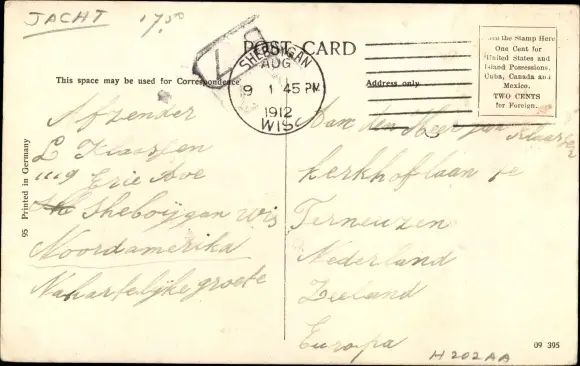 JACHT 17.50
POST CARD
SHEBOYGAN
AUG
9 1 45 PM
1912
WIS.
the Stamp Here
One Cent for
United States and
Island Possessions,
Cuba, Canada and
Mexico.
TWO CENTS
for Foreign.
This space may be used for Correspondence
Address only
Afzender
L Klaassen
1119 Erie Ave
Sheboijgan Wis
Noordamerika
Nahartelijke groete
Aan den Heer Jan Klaassen
kerkhoflaan te
Terneuzen
Nederland
Zeeland
Europa
95 Printed in Germany
09 395
H202AA